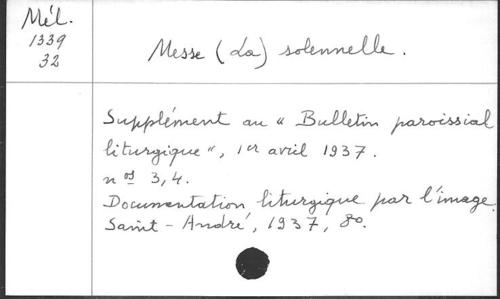 Mél.
1339
32
Messe (La) solennelle.
Supplément au "Bulletin paroissial
liturgique", 1er avril 1937.
nos 3,4.
Documentation liturgique par l'image.
Saint-André, 1937, 8o.